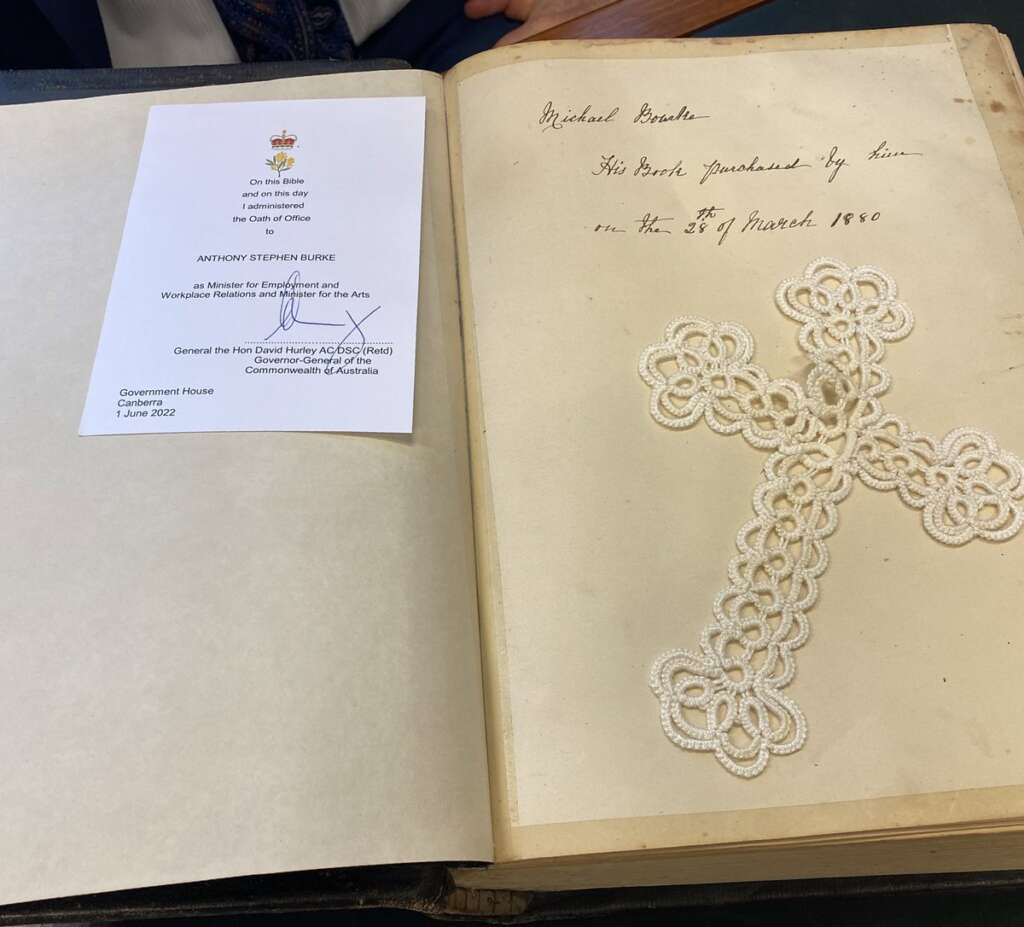 On this Bible
and on this day
I administered
the Oath of Office
to
ANTHONY STEPHEN BURKE
as Minister for Employment and
Workplace Relations and Minister for the Arts
General the Hon David Hurley AC DSC (Retd)
Governor-General of the
Commonwealth of Australia
Government House
Canberra
1 June 2022
Michael Bourke
His Book purchased by him
on the 28th of March 1880